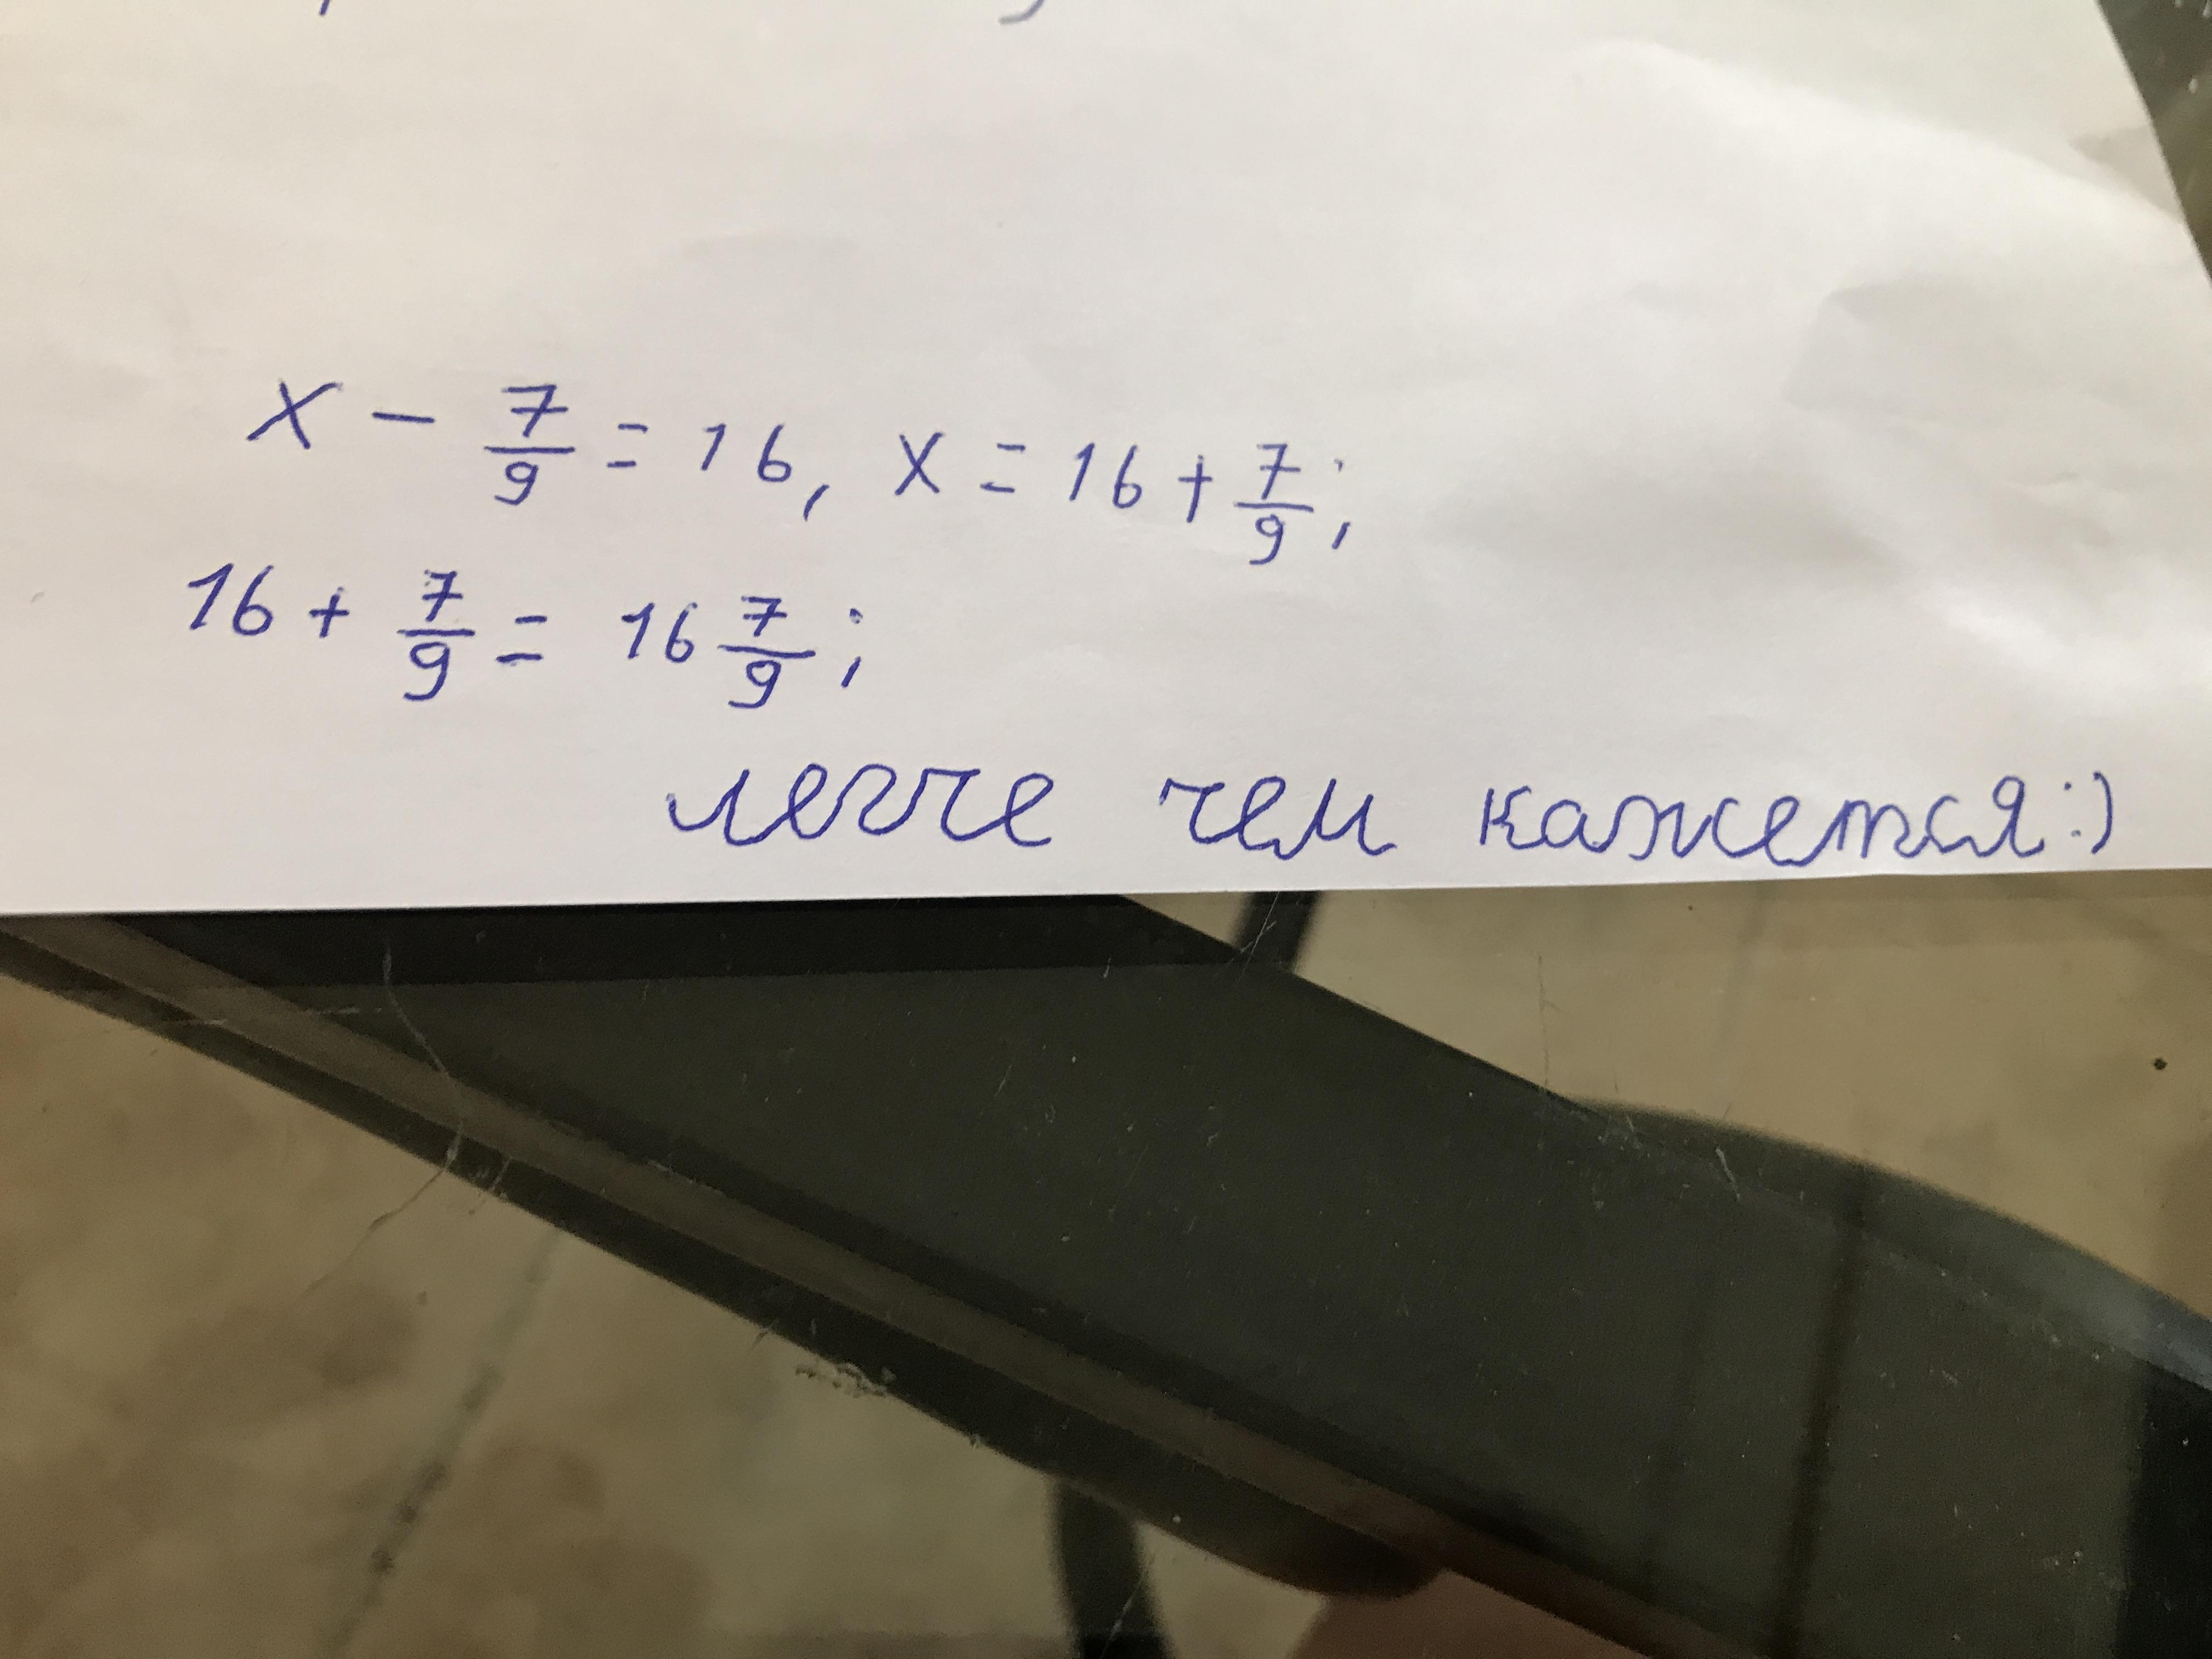 x - 7/9 = 16, x = 16 + 7/9;
16 + 7/9 = 16 7/9;
легче чем кажется:)